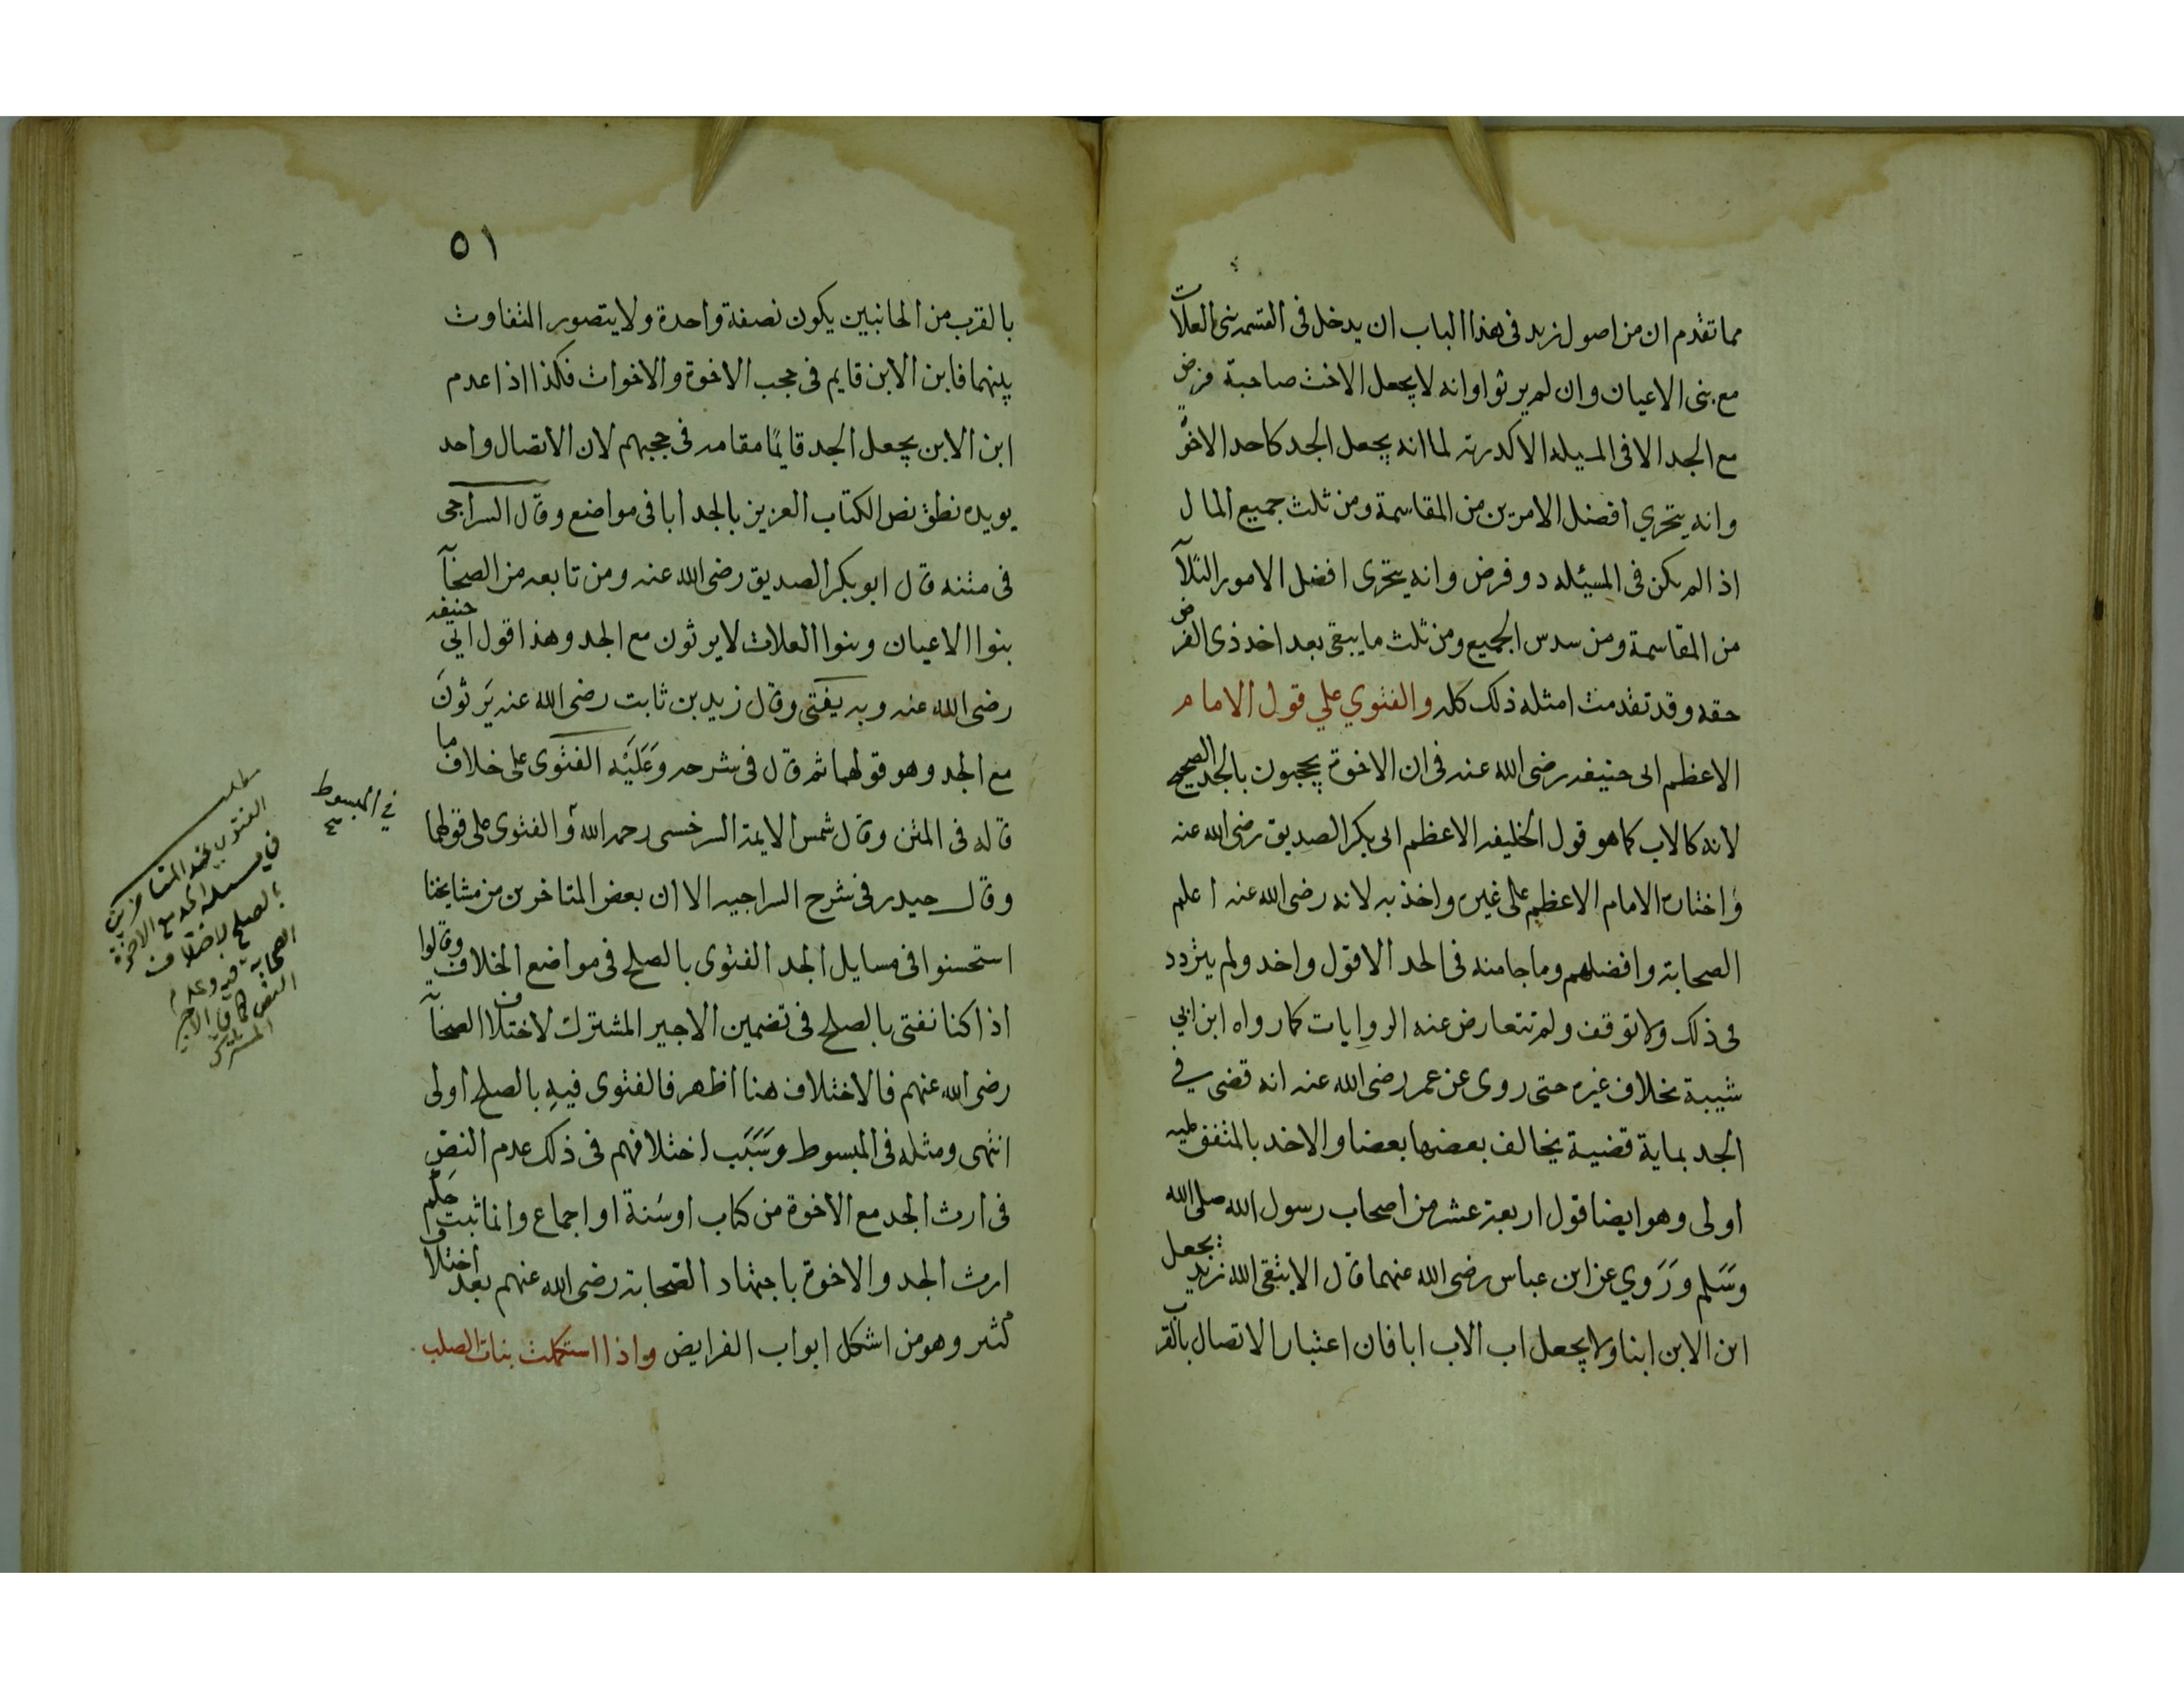 مما تقدم ان من اصول زيد فى هذا الباب ان يدخل فى القسمة بنى العلات
مع بنى الاعيان وان لم يرثوا وانه لا يجعل الاخت صاحبة فرض
مع الجد الا فى المسيله الاكدرية لما انه يجعل الجد كاحد الاخوة
وانه يتحري افضل الامرين من المقاسمة ومن ثلث جميع المال
اذا لم يكن فى المسيئله دو فرض وانه يتحرى افضل الامور الثلاثة
من المقاسمة ومن سدس الجميع ومن ثلث ما يبقى بعد اخد ذى الفرض
حقه وقد تقدمت امثله ذلك كله والفتوي علي قول الامام
الاعظم ابى حنيفه رضى الله عنه فى ان الاخوة يحجبون بالجد الصحيح
لانه كالاب كما هو قول الخليفه الاعظم ابى بكر الصديق رضى الله عنه
واختاره الامام الاعظم على غيره واخذ به لانه رضى الله عنه اعلم
الصحابة وافضلهم وما جا منه فى الجد الا قول واحد ولم يتردد
فى ذلك ولا توقف ولم تتعارض عنه الروايات كما رواه ابن ابي
شيبة بخلاف غيره حتى روى عن عمر رضى الله عنه انه قضى في
الجد بماية قضية يخالف بعضها بعضا والاخد بالمتفق عليه
اولى وهو ايضا قول اربعة عشر من اصحاب رسول الله صلى الله
وَسَلم وَرَوي عن ابن عباس رضى الله عنهما قال الا يتقى الله زيد يجعل
ابن الابن ابنا ولا يجعل اب الاب ابا فان اعتبار الاتصال بالقرب
٥١
بالقرب من الجانبين يكون نصفة واحدة ولا يتصور التفاوت
بينهما فابن الابن قايم فى حجب الاخوة والاخوات فكذا اذا عدم
ابن الابن يجعل الجد قايمًا مقامه فى حجبهم لان الاتصال واحد
يويده نطق نص الكتاب العزيز بالجد ابا فى مواضع وقال السراجى
فى متنه قال ابو بكر الصديق رضى الله عنه ومن تابعه من الصحابة
بنوا الاعيان وبنوا العلات لا يرثون مع الجد وهذا قول ابي حنيفه
رضى الله عنه وبه يفتى وقال زيد بن ثابت رضى الله عنه يَرثونَ
مع الجد وهو قولهما ثم قال فى شرحه وَعَلَيْه الفتوى على خلاف ما
قاله فى المتن وقال شمس الايمة السرخسى رحمه الله والفتوى على قولهما
في المبسوط صح
وقال حيدر فى شرح السراجيه الا ان بعض المتاخرين من مشايخنا
استحسنوا فى مسايل الجد الفتوى بالصلح فى مواضع الخلاف وقالوا
اذا كنا نفتى بالصلح فى تضمين الاجير المشترك لاختلاف الصحابة
رضى الله عنهم فالاختلاف هنا اظهر فالفتوى فيهِ بالصلح اولى
انتهى ومثله فى المبسوط وَسَبَب اختلافهم فى ذلك عدم النصِ
فى ارث الجد مع الاخوة من كتاب اوسَنة او اجماع وانما ثبت حكم
ارث الجد والاخوة باجتهاد الصحابة رضى الله عنهم بعد اختلاف
كثير وهو من اشكل ابواب الفرايض واذا استكملت بنات الصلب
مطلب
الفتوى عند المتاخرين
فى مسئلة الجد مع الاخوة
بالصلح لاختلاف
الصحابة فيه وعدم
النص كما فى الاجير
المشترك